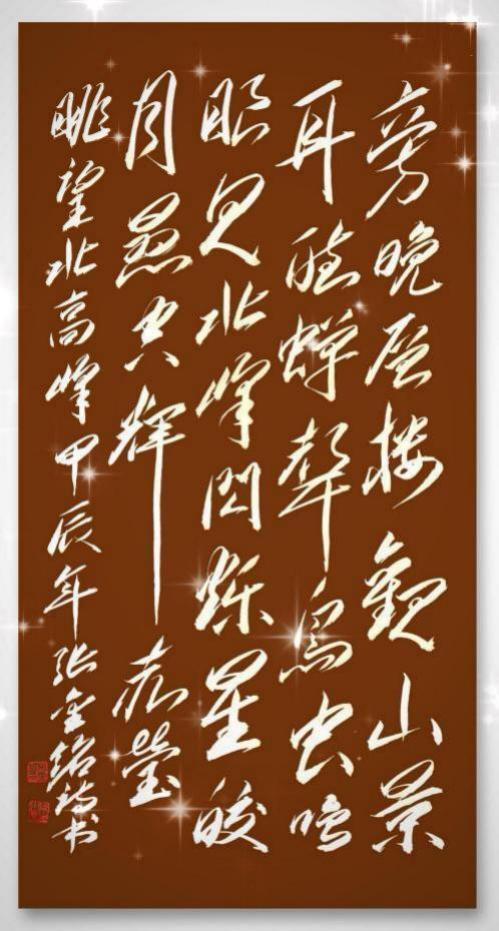 旁晚层楼观山景
耳聴蝉聲鸟虫鸣
眼见北峰闪烁星皎
月空辉莹
眺望北高峰甲辰年张金绍诗书